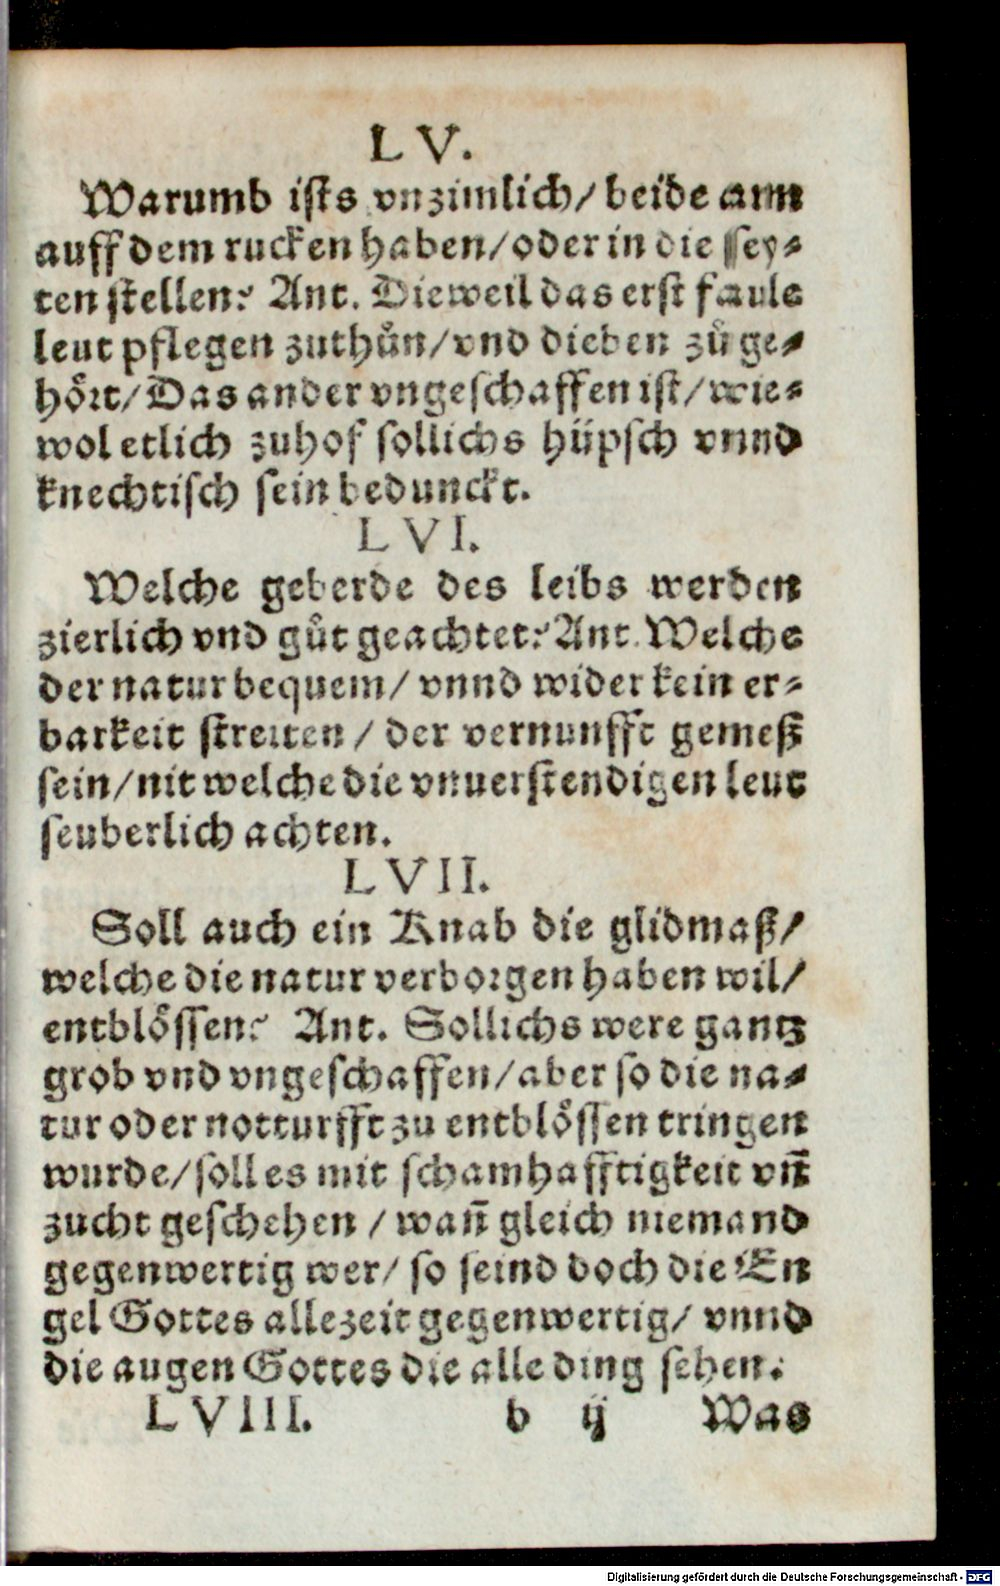 LV.
Warumb ists vnzimlich/ beide arm
auff dem rucken haben/ oder in die sey⸗
ten stellen? Ant. Dieweil das erst faule
leut pflegen zuthůn/ vnd dieben zů ge⸗
hört/ Das ander vngeschaffen ist/ wie⸗
wol etlich zuhof sollichs hüpsch vnnd
knechtisch sein bedunckt.
LVI.
Welche geberde des leibs werden
zierlich vnd gůt geachtet? Ant. Welche
der natur bequem/ vnnd wider kein er⸗
barkeit streiten / der vernunfft gemeß
sein/ nit welche die vnuerstendigen leut
seuberlich achten.
LVII.
Soll auch ein Knab die glidmaß/
welche die natur verborgen haben wil/
entblössen? Ant. Sollichs were gantz
grob vnd vngeschaffen/ aber so die na⸗
tur oder notturfft zu entblössen tringen
wurde/ soll es mit schamhafftigkeit vñ
zucht geschehen / wañ gleich niemand
gegenwertig wer/ so seind doch die En
gel Gottes allezeit gegenwertig/ vnnd
die augen Gottes die alle ding sehen.
LVIII. b ij Was
Digitalisierung gefördert durch die Deutsche Forschungsgemeinschaft - DFG